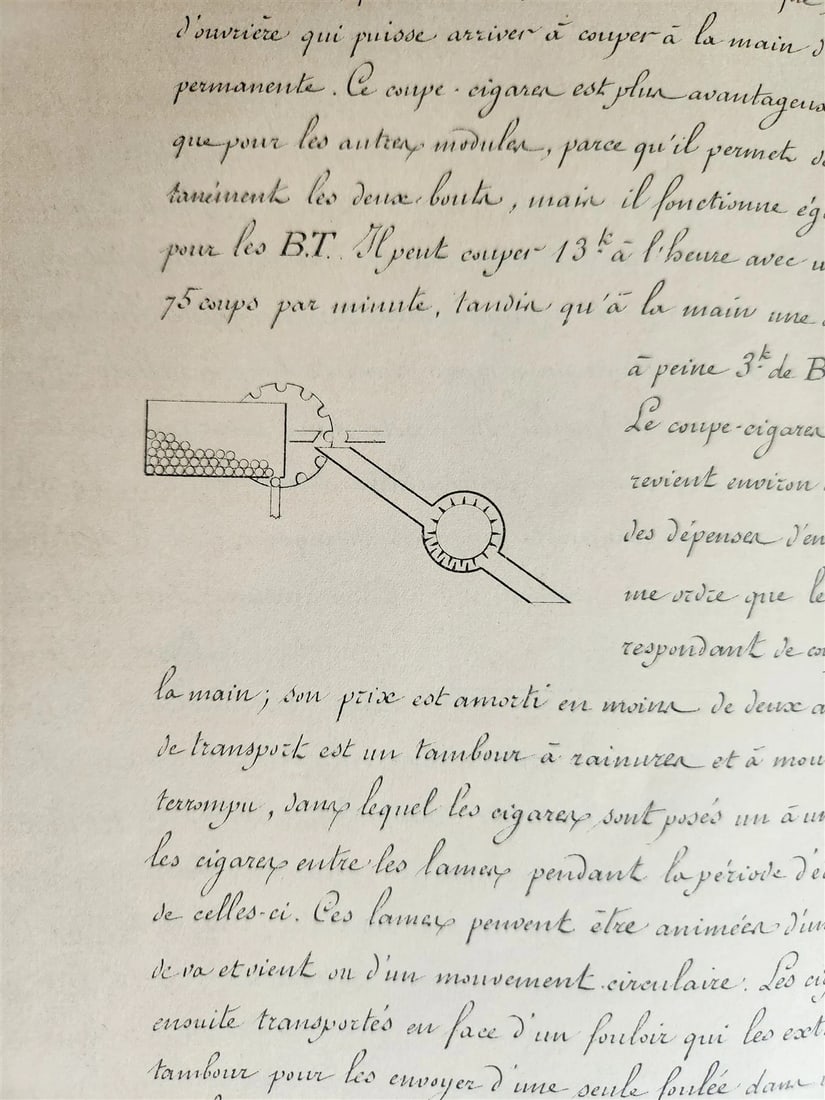 d'ouvrière qui puisse arriver à couper à la main
permanente. Ce coupe-cigares est plus avantageux
que pour les autres modules, parce qu'il permet
tanément les deux bouts, mais il fonctionne
pour les B.T. Il peut couper 13k à l'heure avec
75 coups par minute, tandis qu'à la main une
à peine 3k de B
Le coupe-cigares
revient environ
des dépenses d'en
me ordre que le
respondant de co
la main; son prix est amorti en moins de deux a
de transport est un tambour à rainures et à mou
terrompu, dans lequel les cigares sont posés un à un
les cigares entre les lames pendant la période d'é
de celles-ci. Ces lames peuvent être animées d'un
de va et vient ou d'un mouvement circulaire. Les ci
ensuite transportés en face d'un fouloir qui les ext
tambour pour les envoyer d'une seule foulée dans